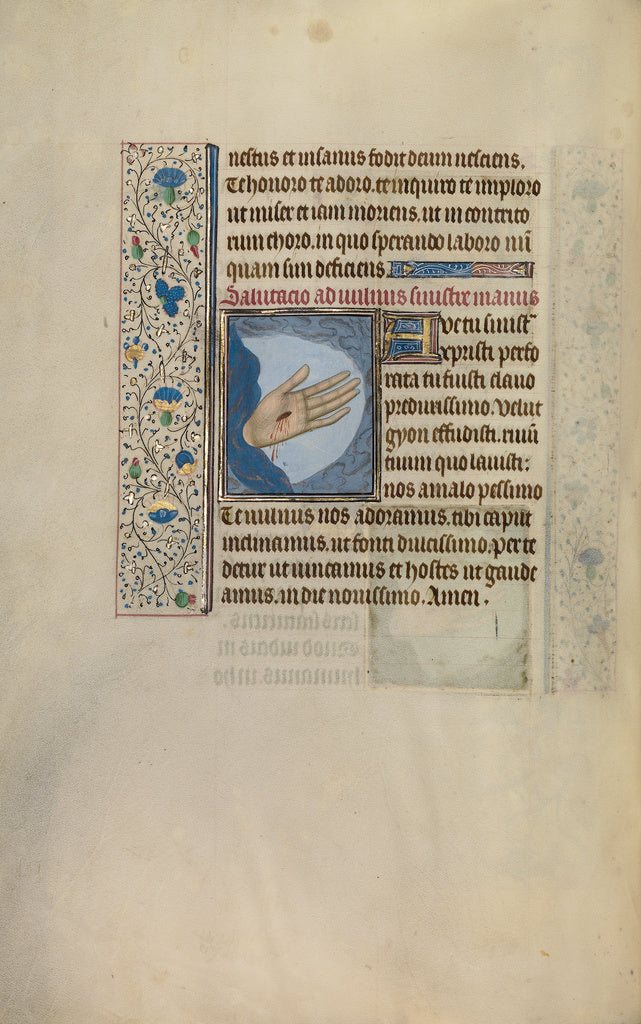 nestus et insanus fodit deum nesciens.
Te honoro te adoro. te inquiro te imploro
ut miser et iam moriens. ut in contrito
rum choro. in quo sperando laboro nū
quam sim deficiens
Salutacio ad vulnus sinistre manus
Ave tu sinistr̄
expristi perfo
rata tu fuisti clavo
predurissimo. Velut
gyon effudisti. rivū
tuum quo lavisti:
nos a malo pessimo
Te vulnus nos adoramus. tibi caput
inclinamus. ut fonti dulcissimo. per te
detur ut vincamus et hostes ut gaude
amus. in die novissimo. Amen.